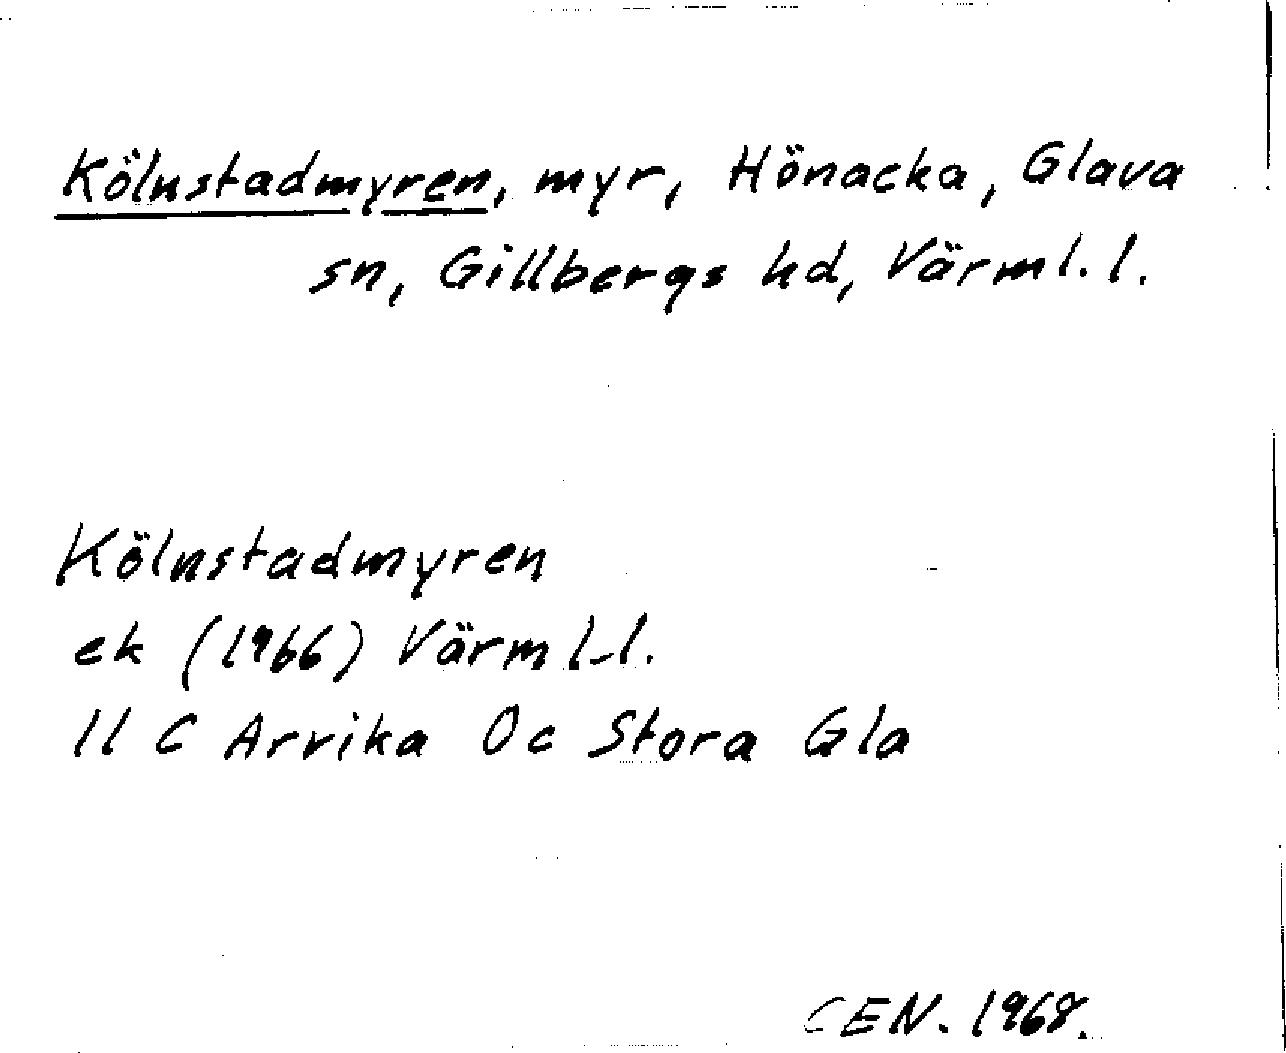 Kölnstadmyren, myr, Hönacka, Glava
sn, Gillbergs hd, Värml. l.
Kölnstadmyren
ek (1966) Värml. l.
11 C Arvika 0c Stora Gla
CEN. 1968.